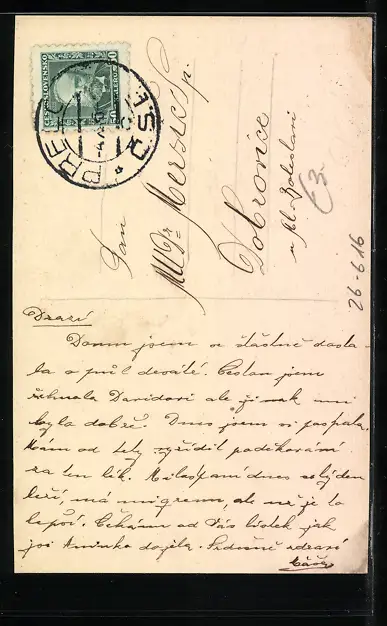 ČESKOSLOVENSKO
ČSR
Pan
MUDr Mersic p.
Dobrovice
u Ml. Boleslavi
26-6 16
Drazí
Domů jsem se šťastně dosta-
la o půl desáté. Cestou jsem
Davidovi ale jinak mi
bylo dobře. Dnes jsem si pospala.
Mám od tety vyřídit poděkování
za ten lék. Milostpaní dnes týden
leží, má migrenu, ale už je to
lepší. Čekám od Vás lístek jak
jsi dojela. Srdečně zdraví